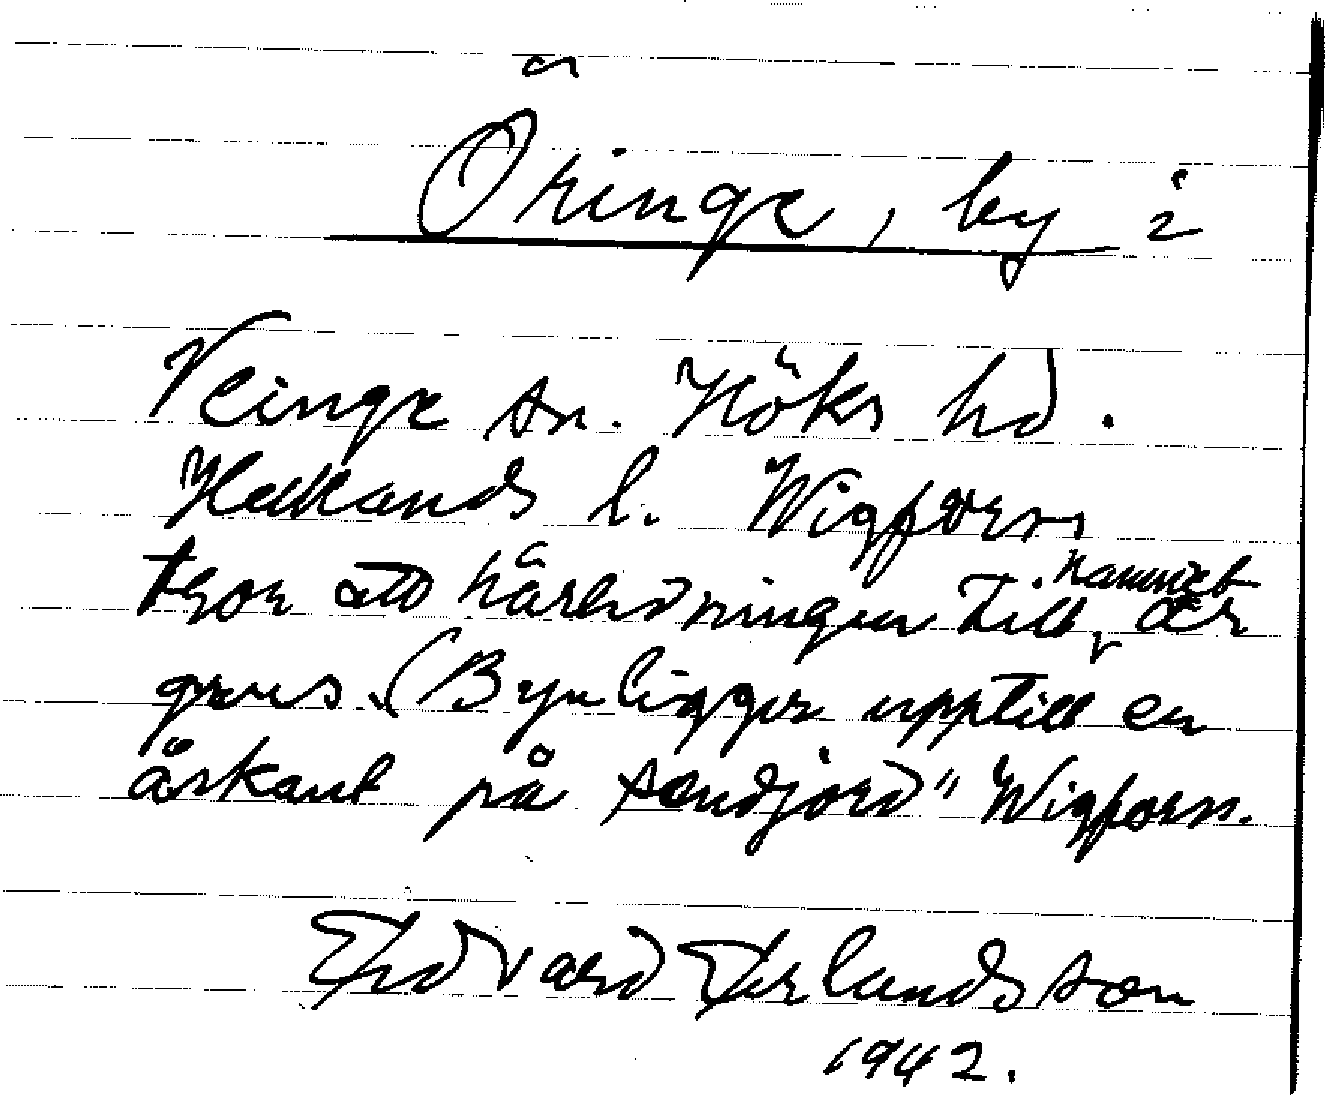 Öringe, by i
Veinge sn. Höks hd.
Hallands l. Wigforss
tror att härledningen till namnet är
grus. (Byn ligger upptill en
åskant på sandjord" Wigforss.
Edvard Erlandsson
1942.